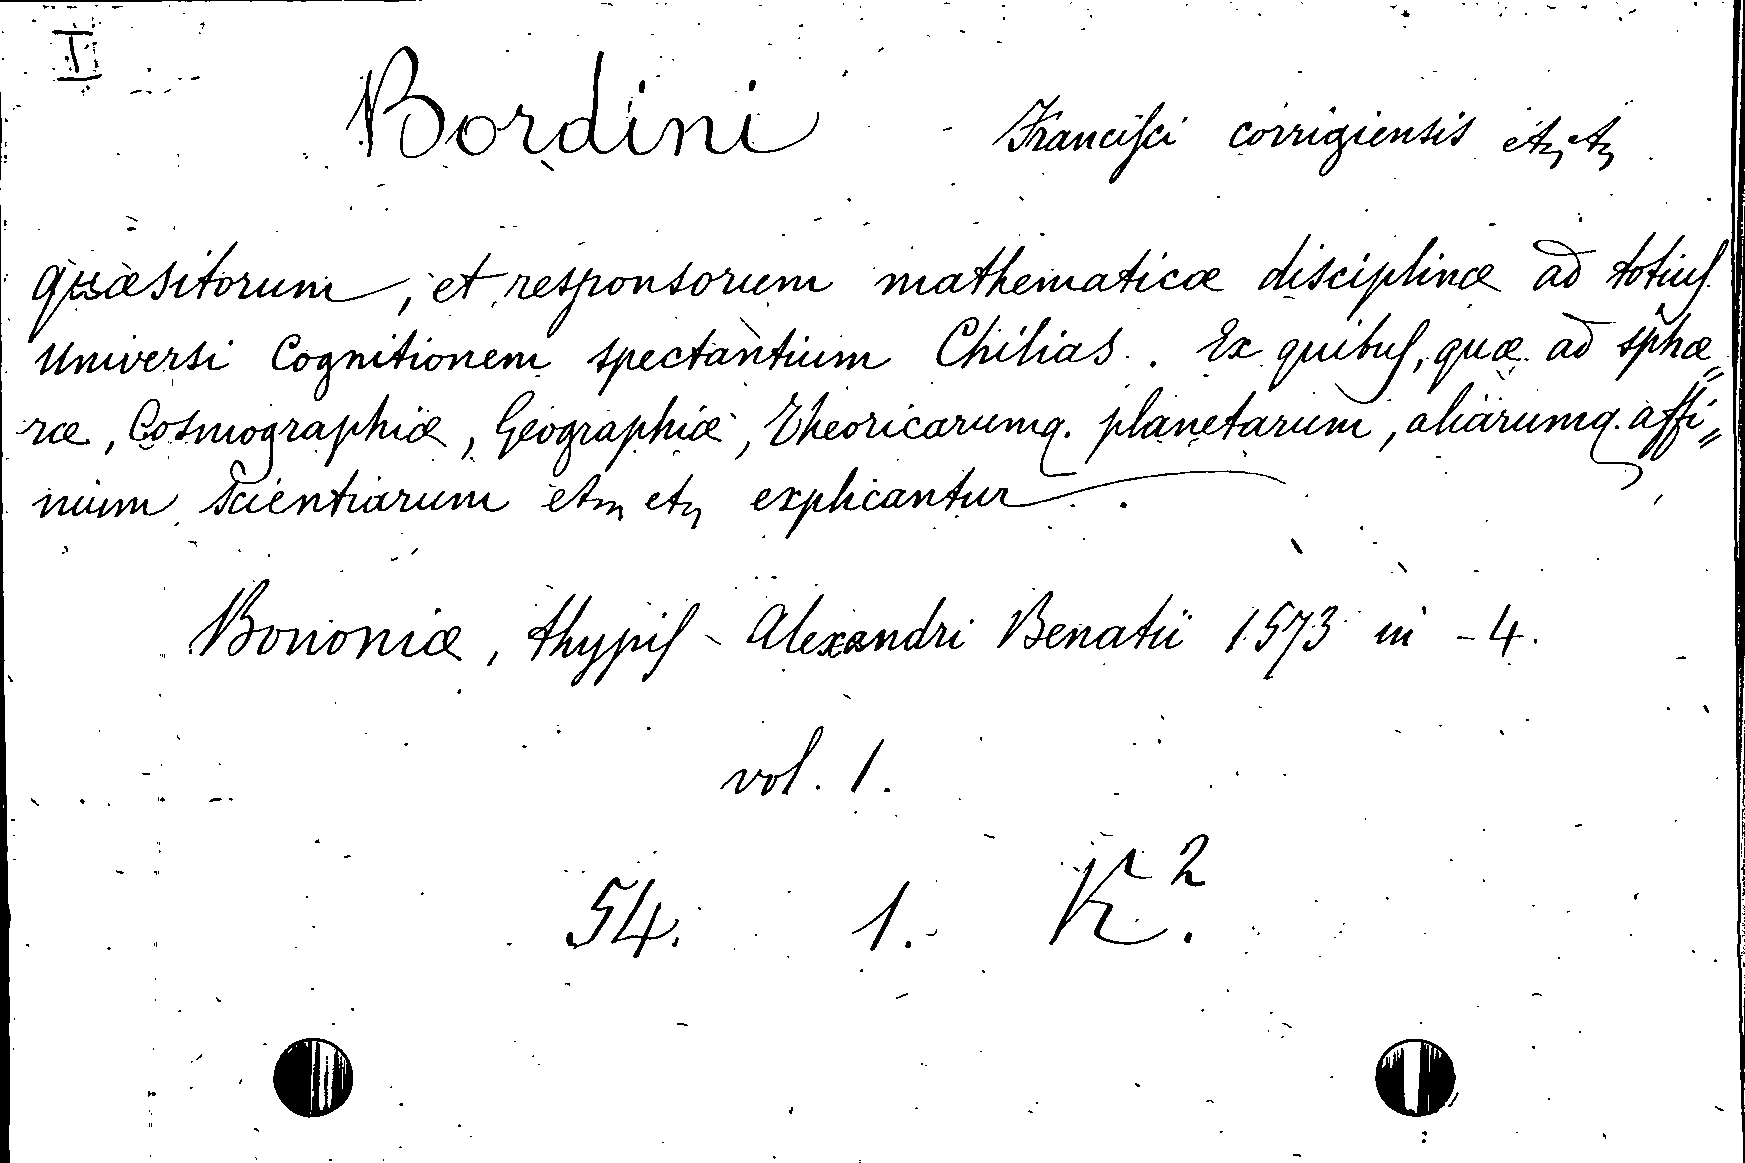 I
Bordini Francisci corrigiensis etc etc
quæsitorum, et responsorum mathematicæ disciplinæ ad totius
Universi Cognitionem spectantium Chilias. Ex quibus, quæ ad sphæ„
ræ, Cosmographiæ, Geographiæ, Theoricarumq. planetarum, aliarumq. affi„
nium scientiarum etc etc explicantur.
Bononiæ, thypis Alexandri Benatii 1573 in-4.
vol. 1.
54. 1. K².